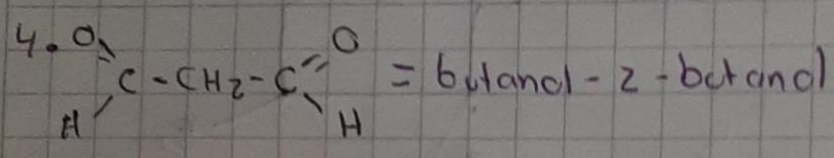 4. O=C(H)-CH2-C(=O)H = butanal-2-butanal